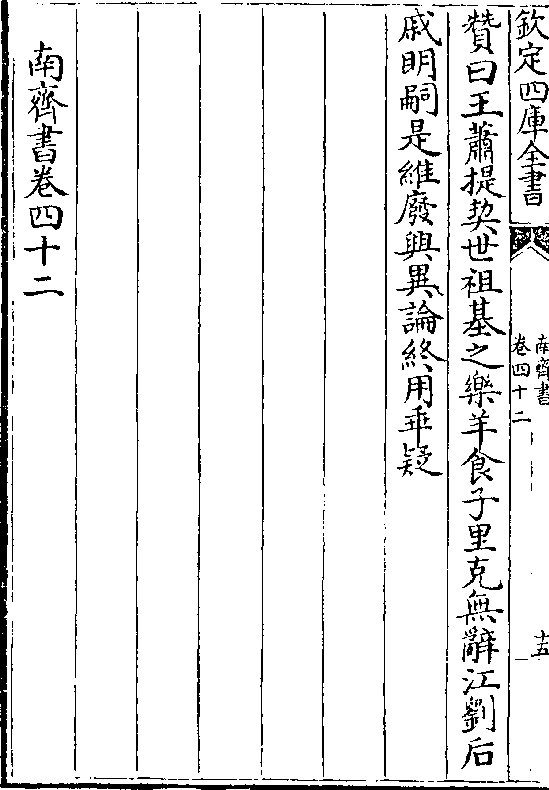 欽定四庫全書
南齊書
卷四十二
十五
贊曰王蕭提契世祖基之樂羊食子里克無辭江劉后
戚明嗣是維廢興異論終用乖疑
南齊書卷四十二